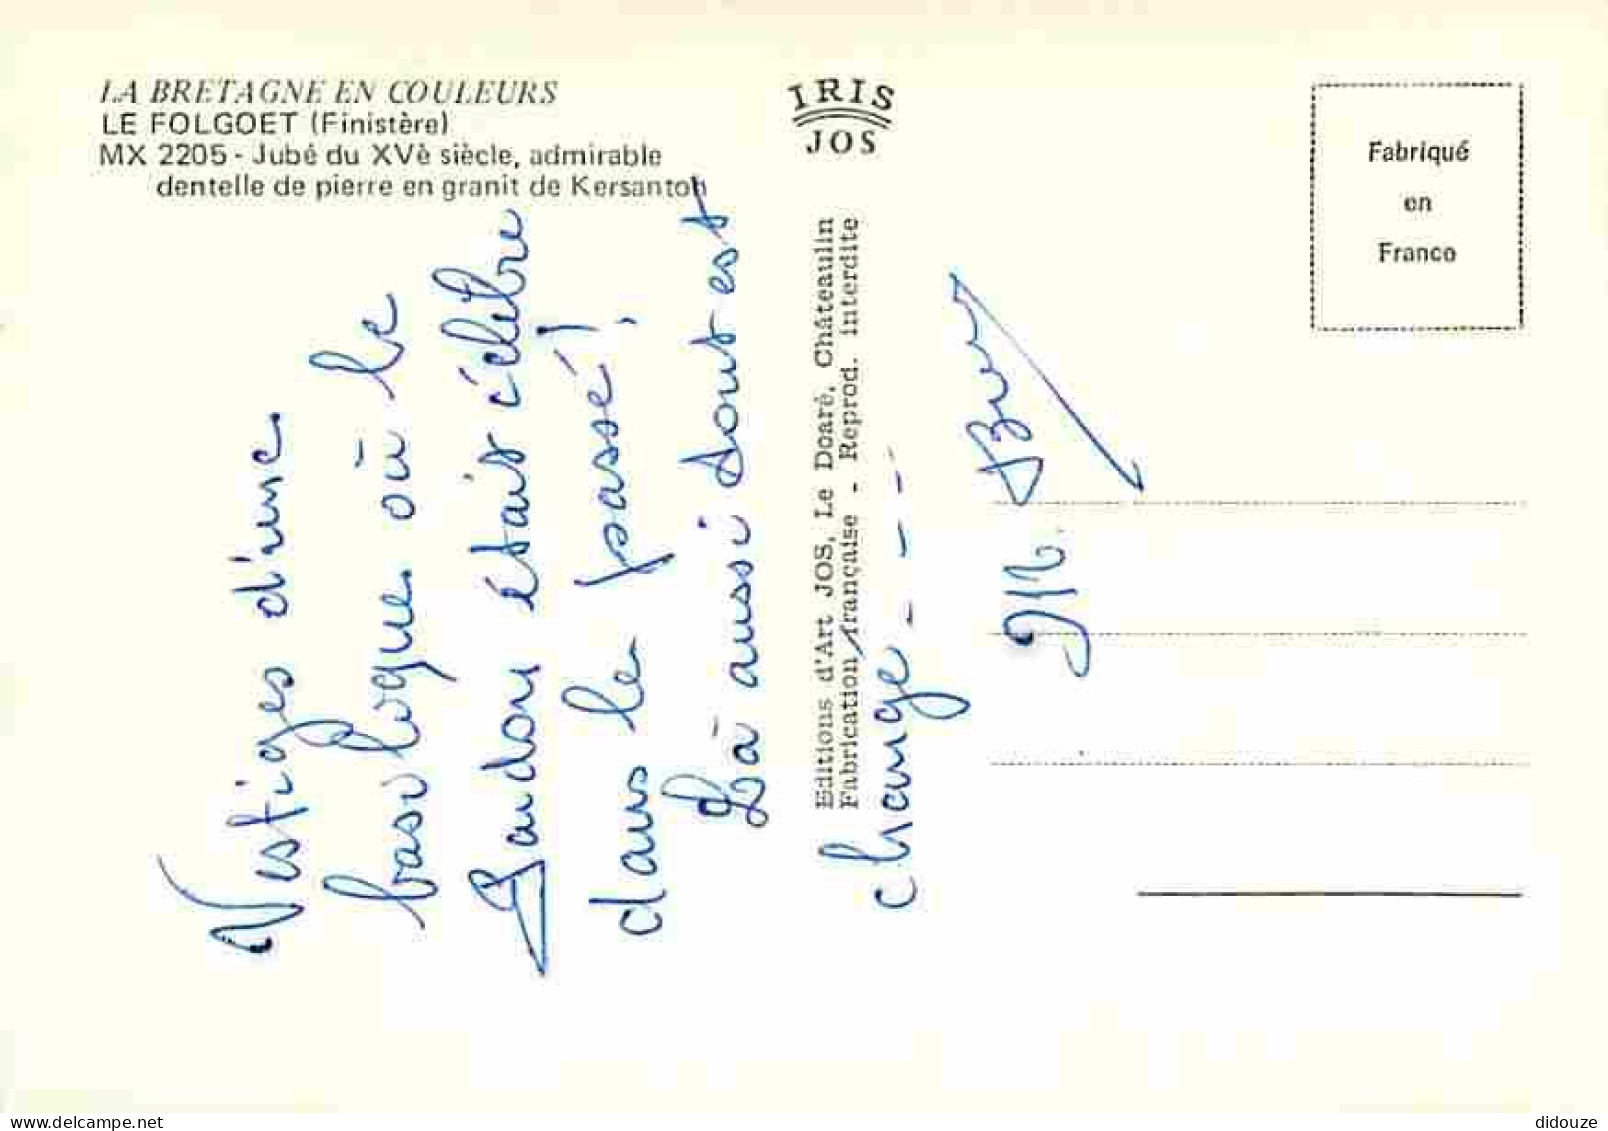 LA BRETAGNE EN COULEURS
LE FOLGOET (Finistère)
MX 2205 - Jubé du XVè siècle, admirable
dentelle de pierre en granit de Kersanton
IRIS
JOS
Fabriqué
en
France
Editions d'Art JOS, Le Doaré, Châteaulin
Fabrication française - Reprod. interdite
Vestiges d'une
basilique où le
était célèbre
dans le passé !
Là aussi tout est
change - - - -
M.
didouze